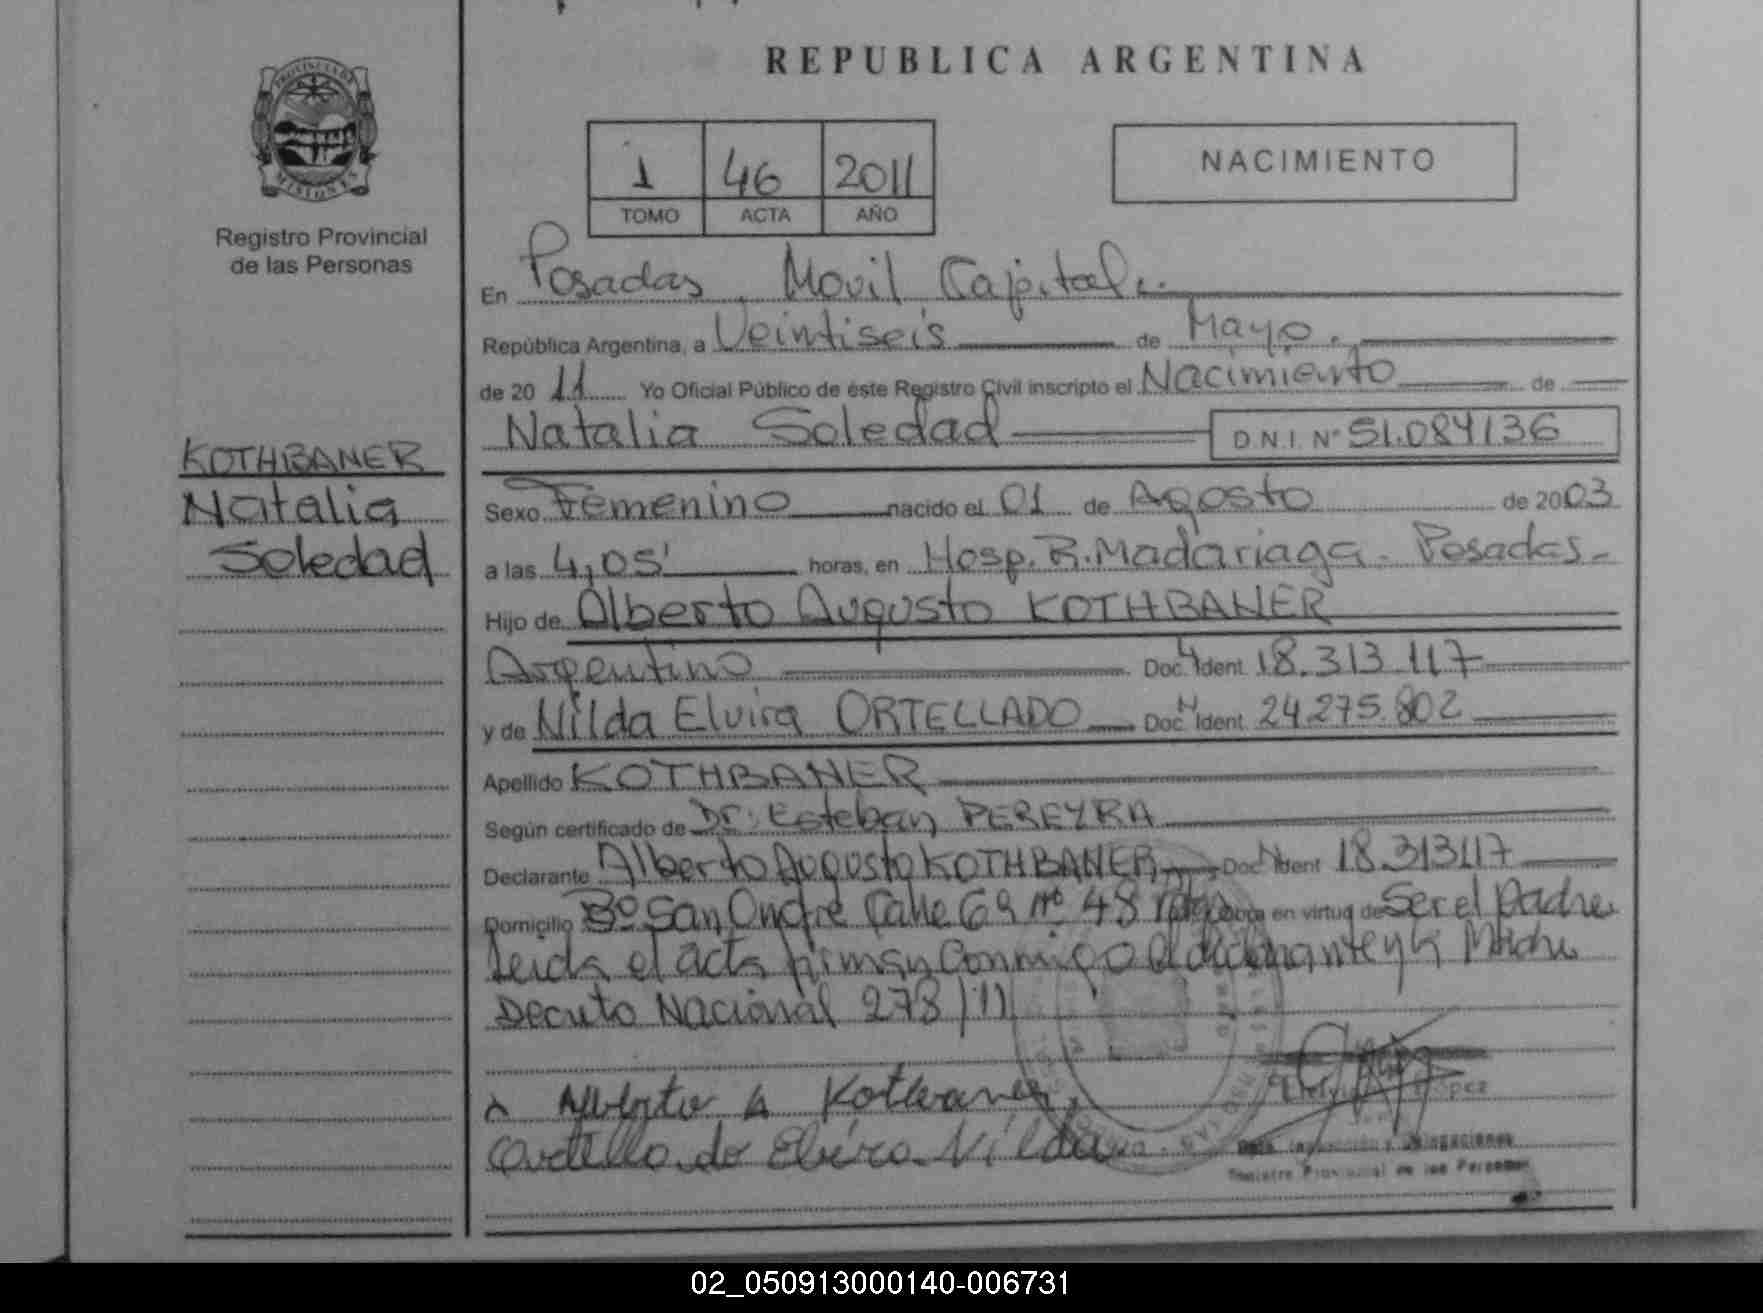 REPUBLICA ARGENTINA
PROVINCIA DE
MISIONES
Registro Provincial
de las Personas
1 46 2011
TOMO ACTA AÑO
NACIMIENTO
En Posadas, Movil Capital.
República Argentina, a Veintiseis de Mayo.
de 20 11 Yo Oficial Público de éste Registro Civil inscripto el Nacimiento de
Natalia Soledad D.N.I. Nº 51.084136
KOTHBANER
Natalia
Soledad
Sexo Femenino nacido el 01 de Agosto de 2003
a las 4,05' horas, en Hosp. R. Madariaga - Posadas -
Hijo de Alberto Augusto KOTHBANER
Argentino Doc. Ident. 18.313.117
y de Nilda Elvira ORTELLADO Doc. Ident. 24.275.802
Apellido KOTHBANER
Según certificado de Dr. Esteban PEREYRA
Declarante Alberto Augusto KOTHBANER Doc. Ident 18.313117
Domicilio Bº San Onofre Calle 69 nº 48 en virtud de Ser el Padre
Leida el acta firman conmigo el declarante y la Madre
Decreto Nacional 278/11
Alberto A Kothbaner
Ortellado Elvira Nilda
Registro Provincial de las Personas
02_050913000140-006731